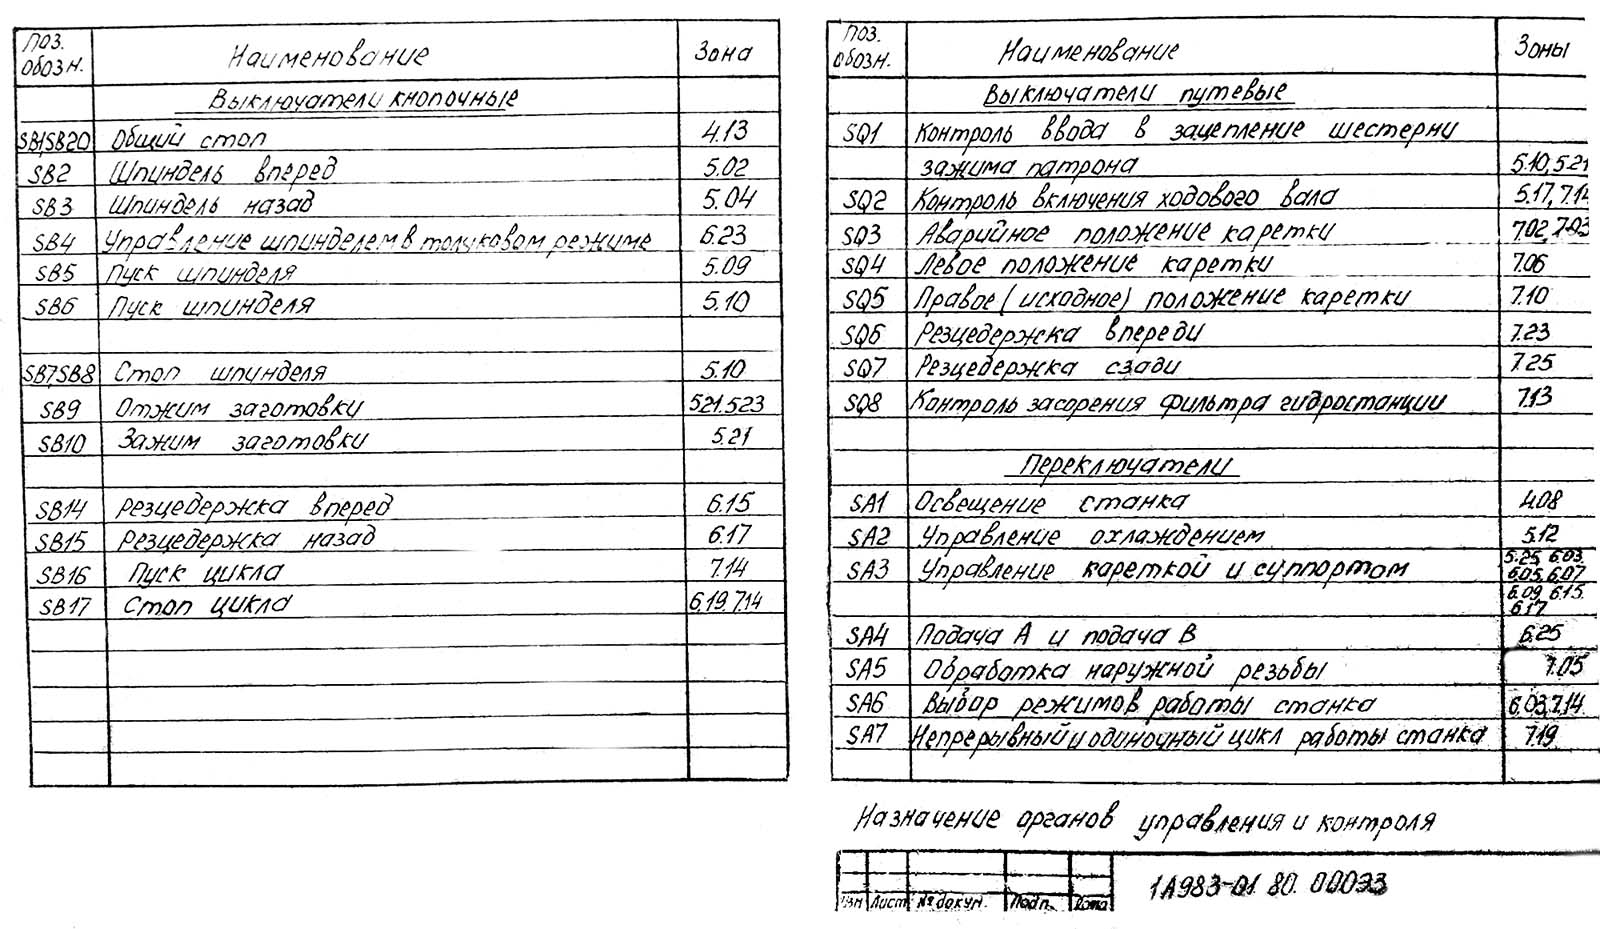 Поз. обозн. Наименование Зона
Выключатели кнопочные
SB1,SB20 Общий стоп 4.13
SB2 Шпиндель вперед 5.02
SB3 Шпиндель назад 5.04
SB4 Управление шпинделем в толчковом режиме 6.23
SB5 Пуск шпинделя 5.09
SB6 Пуск шпинделя 5.10
SB7,SB8 Стоп шпинделя 5.10
SB9 Отжим заготовки 5.21.5.23
SB10 Зажим заготовки 5.21
SB14 Резцедержка вперед 6.15
SB15 Резцедержка назад 6.17
SB16 Пуск цикла 7.14
SB17 Стоп цикла 6.19,7.14
Поз. обозн. Наименование Зоны
Выключатели путевые
SQ1 Контроль ввода в зацепление шестерни
зажима патрона 5.10,5.21
SQ2 Контроль включения ходового вала 5.17,7.14
SQ3 Аварийное положение каретки 7.02,7.03
SQ4 Левое положение каретки 7.06
SQ5 Правое (исходное) положение каретки 7.10
SQ6 Резцедержка впереди 7.23
SQ7 Резцедержка сзади 7.25
SQ8 Контроль засорения фильтра гидростанции 7.13
Переключатели
SA1 Освещение станка 4.08
SA2 Управление охлаждением 5.12
SA3 Управление кареткой и суппортом 5.25, 6.03
6.05, 6.07
6.09, 6.15.
6.17
SA4 Подача А и подача В 6.25
SA5 Обработка наружной резьбы 7.05
SA6 Выбор режимов работы станка 6.03,7.14
SA7 Непрерывный и одиночный цикл работы станка 7.19
Назначение органов управления и контроля
Изм Лист № докум. Подп. Дата
1А983-01.80.000Э3